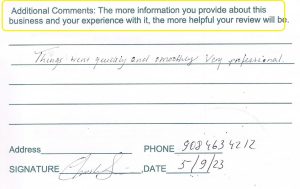 Additional Comments: The more information you provide about this
business and your experience with it, the more helpful your review will be.
Things went quickly and smoothly Very professional
Address PHONE 9084634212
SIGNATURE DATE 5/9/23